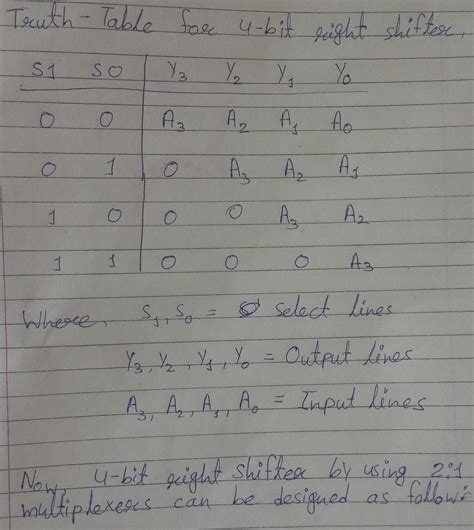 Truth-Table for 4-bit right shifter,
S1 S0 Y₃ Y₂ Y₁ Y₀
0 0 A₃ A₂ A₁ A₀
0 1 0 A₃ A₂ A₁
1 0 0 0 A₃ A₂
1 1 0 0 0 A₃
Where, S₁, S₀ = select lines
Y₃, Y₂, Y₁, Y₀ = Output lines
A₃, A₂, A₁, A₀ = Input lines
Now 4-bit right shifter by using 2:1
multiplexers can be designed as follow: